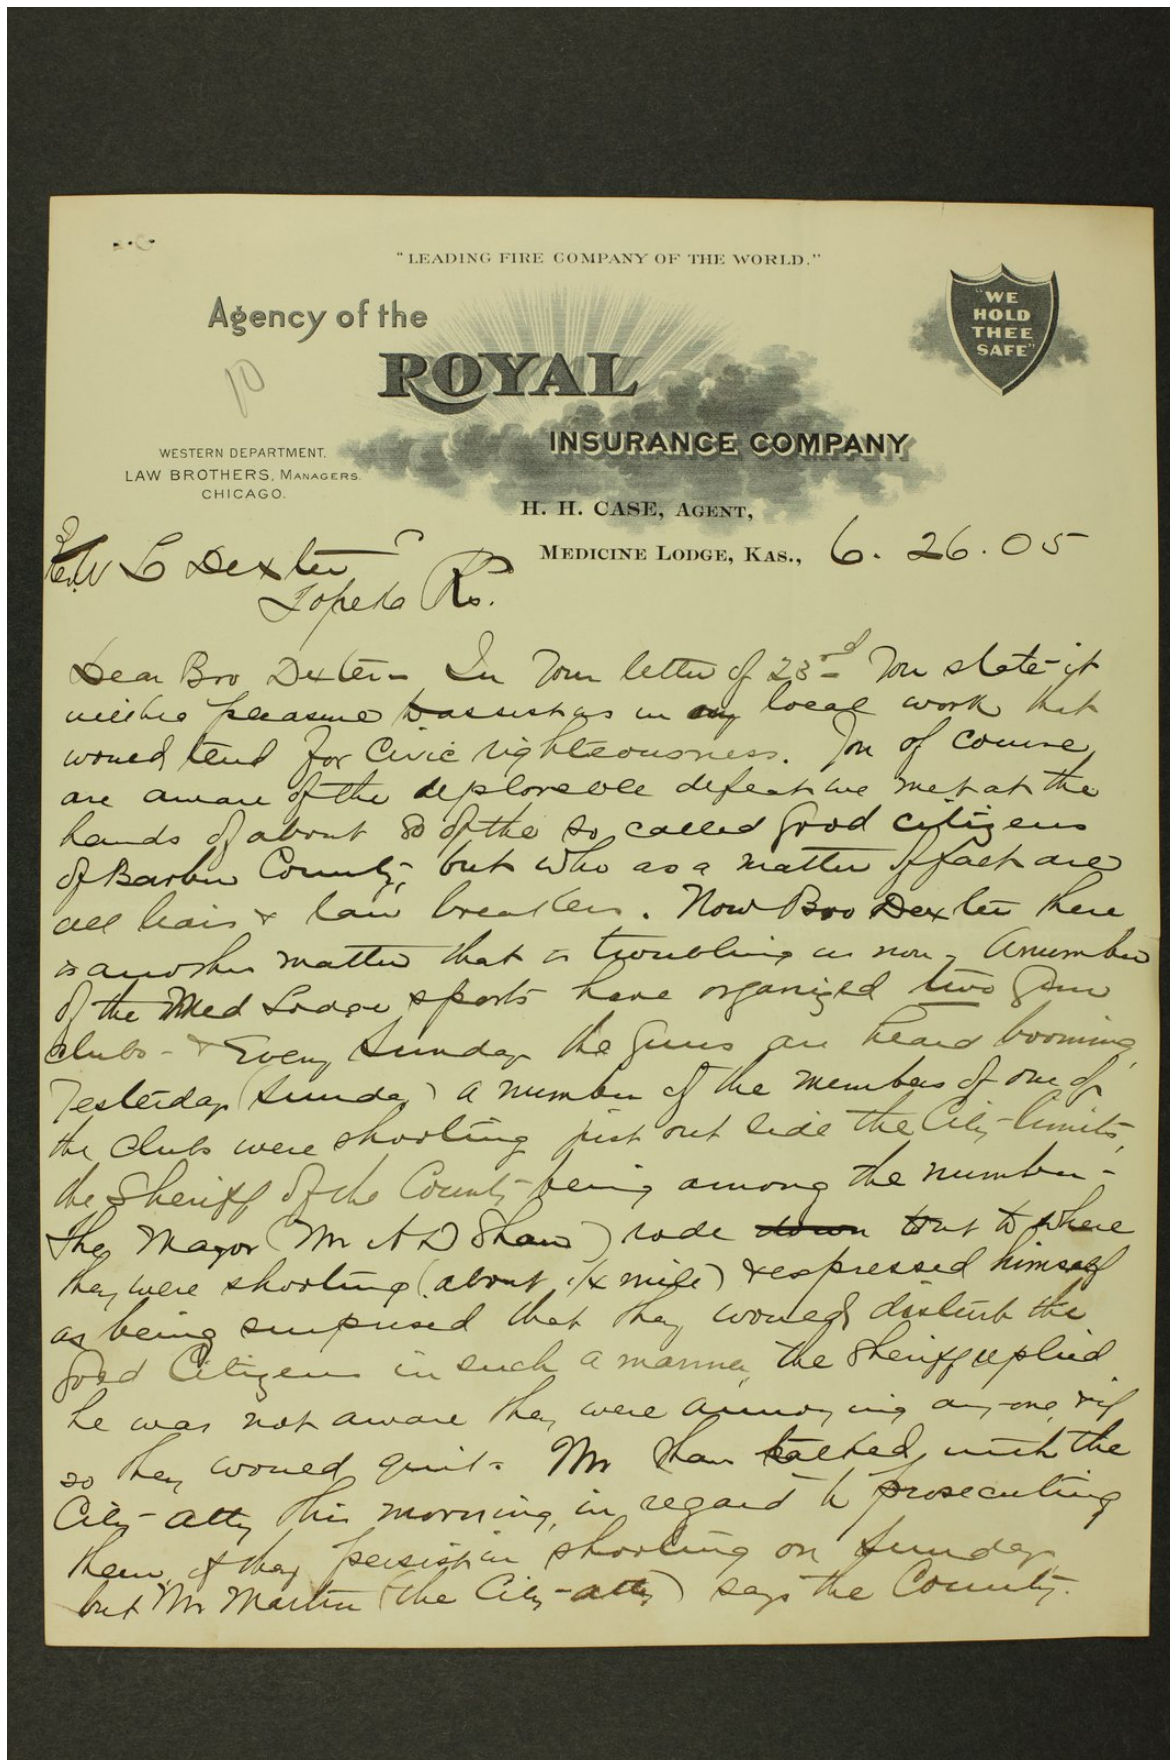 "LEADING FIRE COMPANY OF THE WORLD."
Agency of the
ROYAL
INSURANCE COMPANY
"WE
HOLD
THEE
SAFE"
10
WESTERN DEPARTMENT.
LAW BROTHERS, MANAGERS.
CHICAGO.
H. H. CASE, AGENT,
MEDICINE LODGE, KAS., 6. 26. 05
Rev W C Dexter
Topeka Ks.
Dear Bro Dexter - In your letter of 23rd you state it
will be a pleasure to assist us in any local work that
would tend for Civic righteousness. You of course,
are aware of the deploreable defeat we met at the
hands of about 80 of the so called good citizens
of Barber County, but who as a matter of fact are
all liars & law breakers. Now Bro Dexter here
is another matter that is troubling us now - A number
of the Med Lodge sports have organized two gun
clubs - & Every Sunday the guns are heard booming,
Yesterday (Sunday) a number of the members of one of
the clubs were shooting just out side the City limits,
the Sheriff of the County being among the number -
The Mayor (Mr A D Shaw) rode down out to where
they were shooting (about 1/4 mile) & expressed himself
as being surprised that they would disturb the
good Citizens in such a manner, the Sheriff replied
he was not aware they were annoying any one, & if
so they would quit. Mr Shaw talked with the
City-atty this morning, in regard to prosecuting
them, if they persist in shooting on Sunday,
but Mr Martin (the City-atty) says the County.